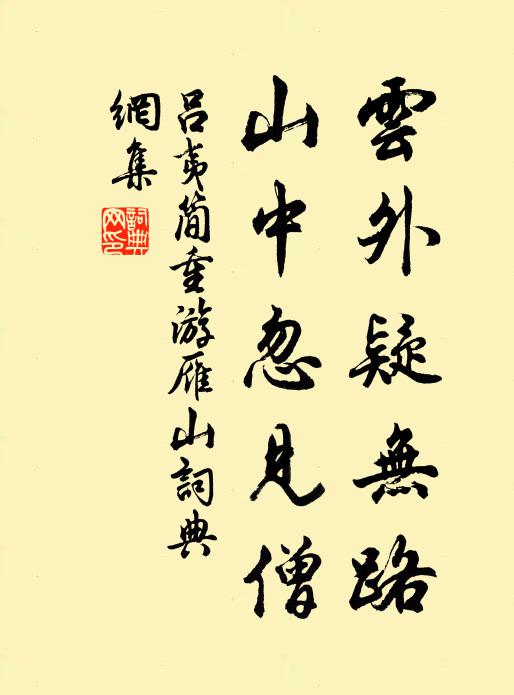 雲外疑無路
山中忽見僧
呂夷簡重游雁山詞典
網集
詞典網印